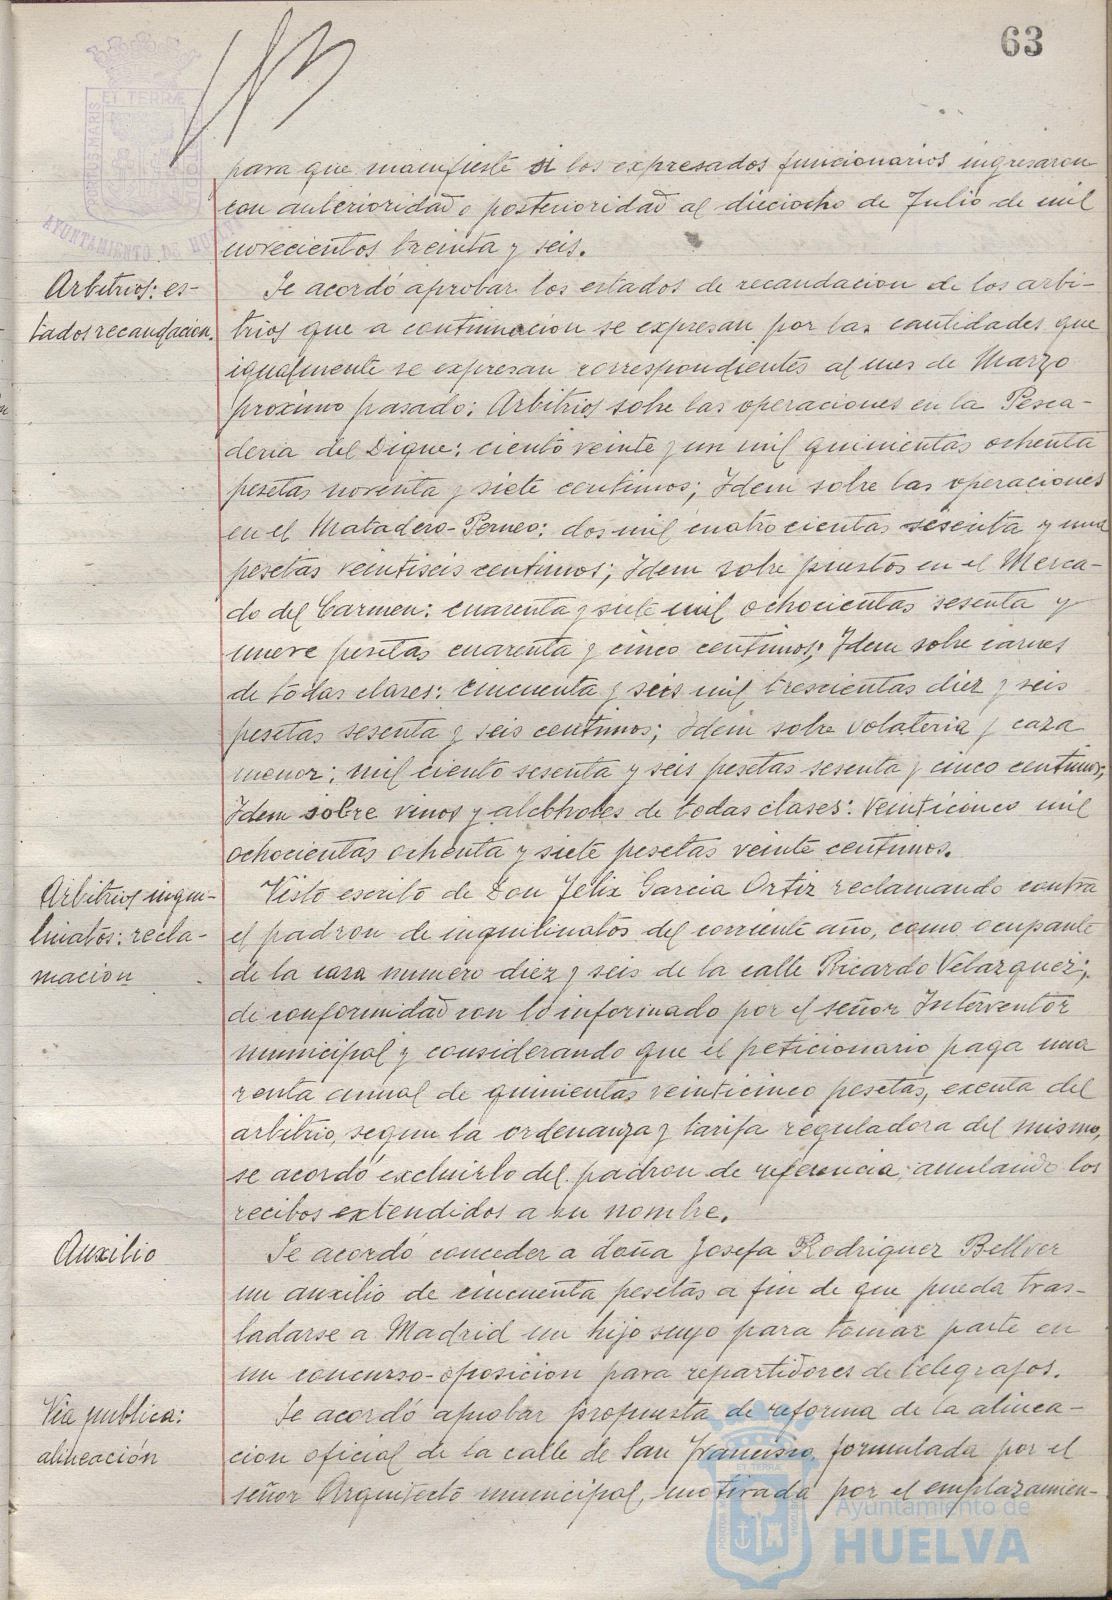 63
para que manifieste si los expresados funcionarios ingresaron
con anterioridad o posterioridad al dieciocho de Julio de mil
novecientos treinta y seis.
Arbitrios: es-
tados recaudacion.
Se acordó aprobar los estados de recaudacion de los arbi-
trios que a continuacion se expresan por las cantidades que
igualmente se expresan correspondientes al mes de Marzo
proximo pasado: Arbitrios sobre las operaciones en la Pesca-
deria del Dique: ciento veinte y un mil quinientas ochenta
pesetas noventa y siete centimos; Idem sobre las operaciones
en el Matadero-Perneo: dos mil cuatrocientas sesenta y una
pesetas veintiseis centimos; Idem sobre puestos en el Merca-
do del Carmen: cuarenta y siete mil ochocientas sesenta y
nueve pesetas cuarenta y cinco centimos; Idem sobre carnes
de todas clases: cincuenta y seis mil trescientas diez y seis
pesetas sesenta y seis centimos; Idem sobre volateria y caza
menor: mil ciento sesenta y seis pesetas sesenta y cinco centimos;
Idem sobre vinos y alcoholes de todas clases: veinticinco mil
ochocientas ochenta y siete pesetas veinte centimos.
Arbitrios inqui-
linatos: recla-
macion
Visto escrito de Don Felix Garcia Ortiz reclamando contra
el padron de inquilinatos del corriente año, como ocupante
de la casa numero diez y seis de la calle Ricardo Velazquez;
de conformidad con lo informado por el señor Interventor
municipal y considerando que el peticionario paga una
renta anual de quinientas veinticinco pesetas, exenta del
arbitrio, segun la ordenanza y tarifa reguladora del mismo,
se acordó excluirlo del padron de referencia, anulando los
recibos extendidos a su nombre.
Auxilio
Se acordó conceder a doña Josefa Rodriguez Bellver
un auxilio de cincuenta pesetas a fin de que pueda tras-
ladarse a Madrid un hijo suyo para tomar parte en
un concurso-oposicion para repartidores de telegrafos.
Via publica:
alineación
Se acordó aprobar propuesta de reforma de la alinea-
cion oficial de la calle de San Francisco, formulada por el
señor Arquitecto municipal, motivada por el emplazamien-
AYUNTAMIENTO DE HUELVA
Ayuntamiento de
HUELVA